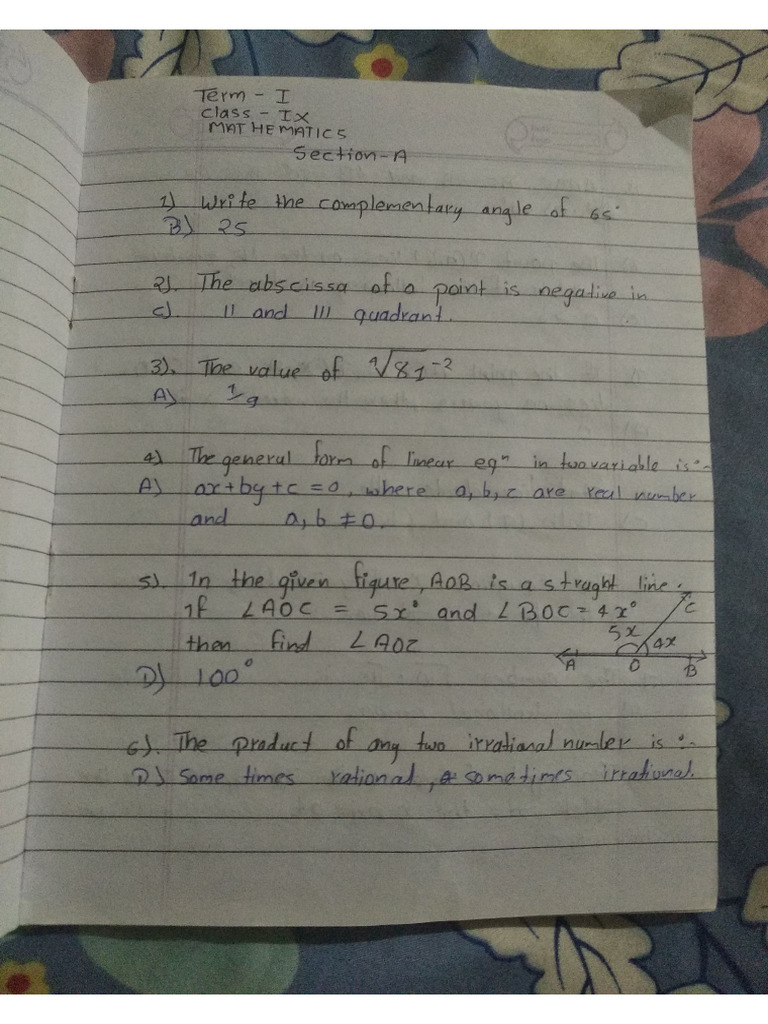 Term - I
Class - IX
MATHEMATICS
Section-A
1) Write the complementary angle of 65°
B) 25
2). The abscissa of a point is negative in
C). II and III quadrant.
3). The value of ∜81⁻²
A) 1/9
4) The general form of linear eqⁿ in two variable is :-
A) ax+by+c=0, where a, b, c are real number
and a, b ≠ 0.
5). In the given figure, AOB is a straght line.
If ∠AOC = 5x° and ∠BOC = 4x°
then find ∠AOC
D) 100°
C
5x
4x
A
O
B
6). The product of any two irrational number is :-
D) Some times rational, sometimes irrational.